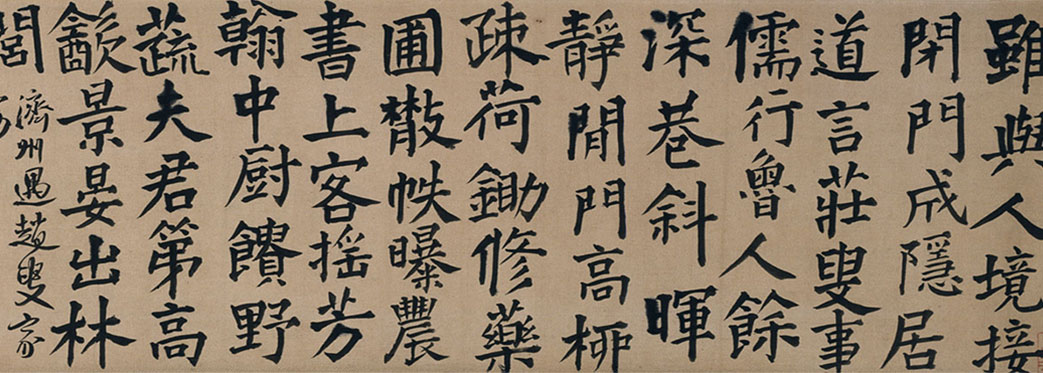 雖與人境接
閉門成隱居
道言莊叟事
儒行魯人餘
深巷斜暉
靜閒門高柳
疎荷鋤修藥
圃散帙曝農
書上客搖芳
翰中厨饋野
蔬夫君第高
㱃景晏出林
閭
濟州過趙叟家